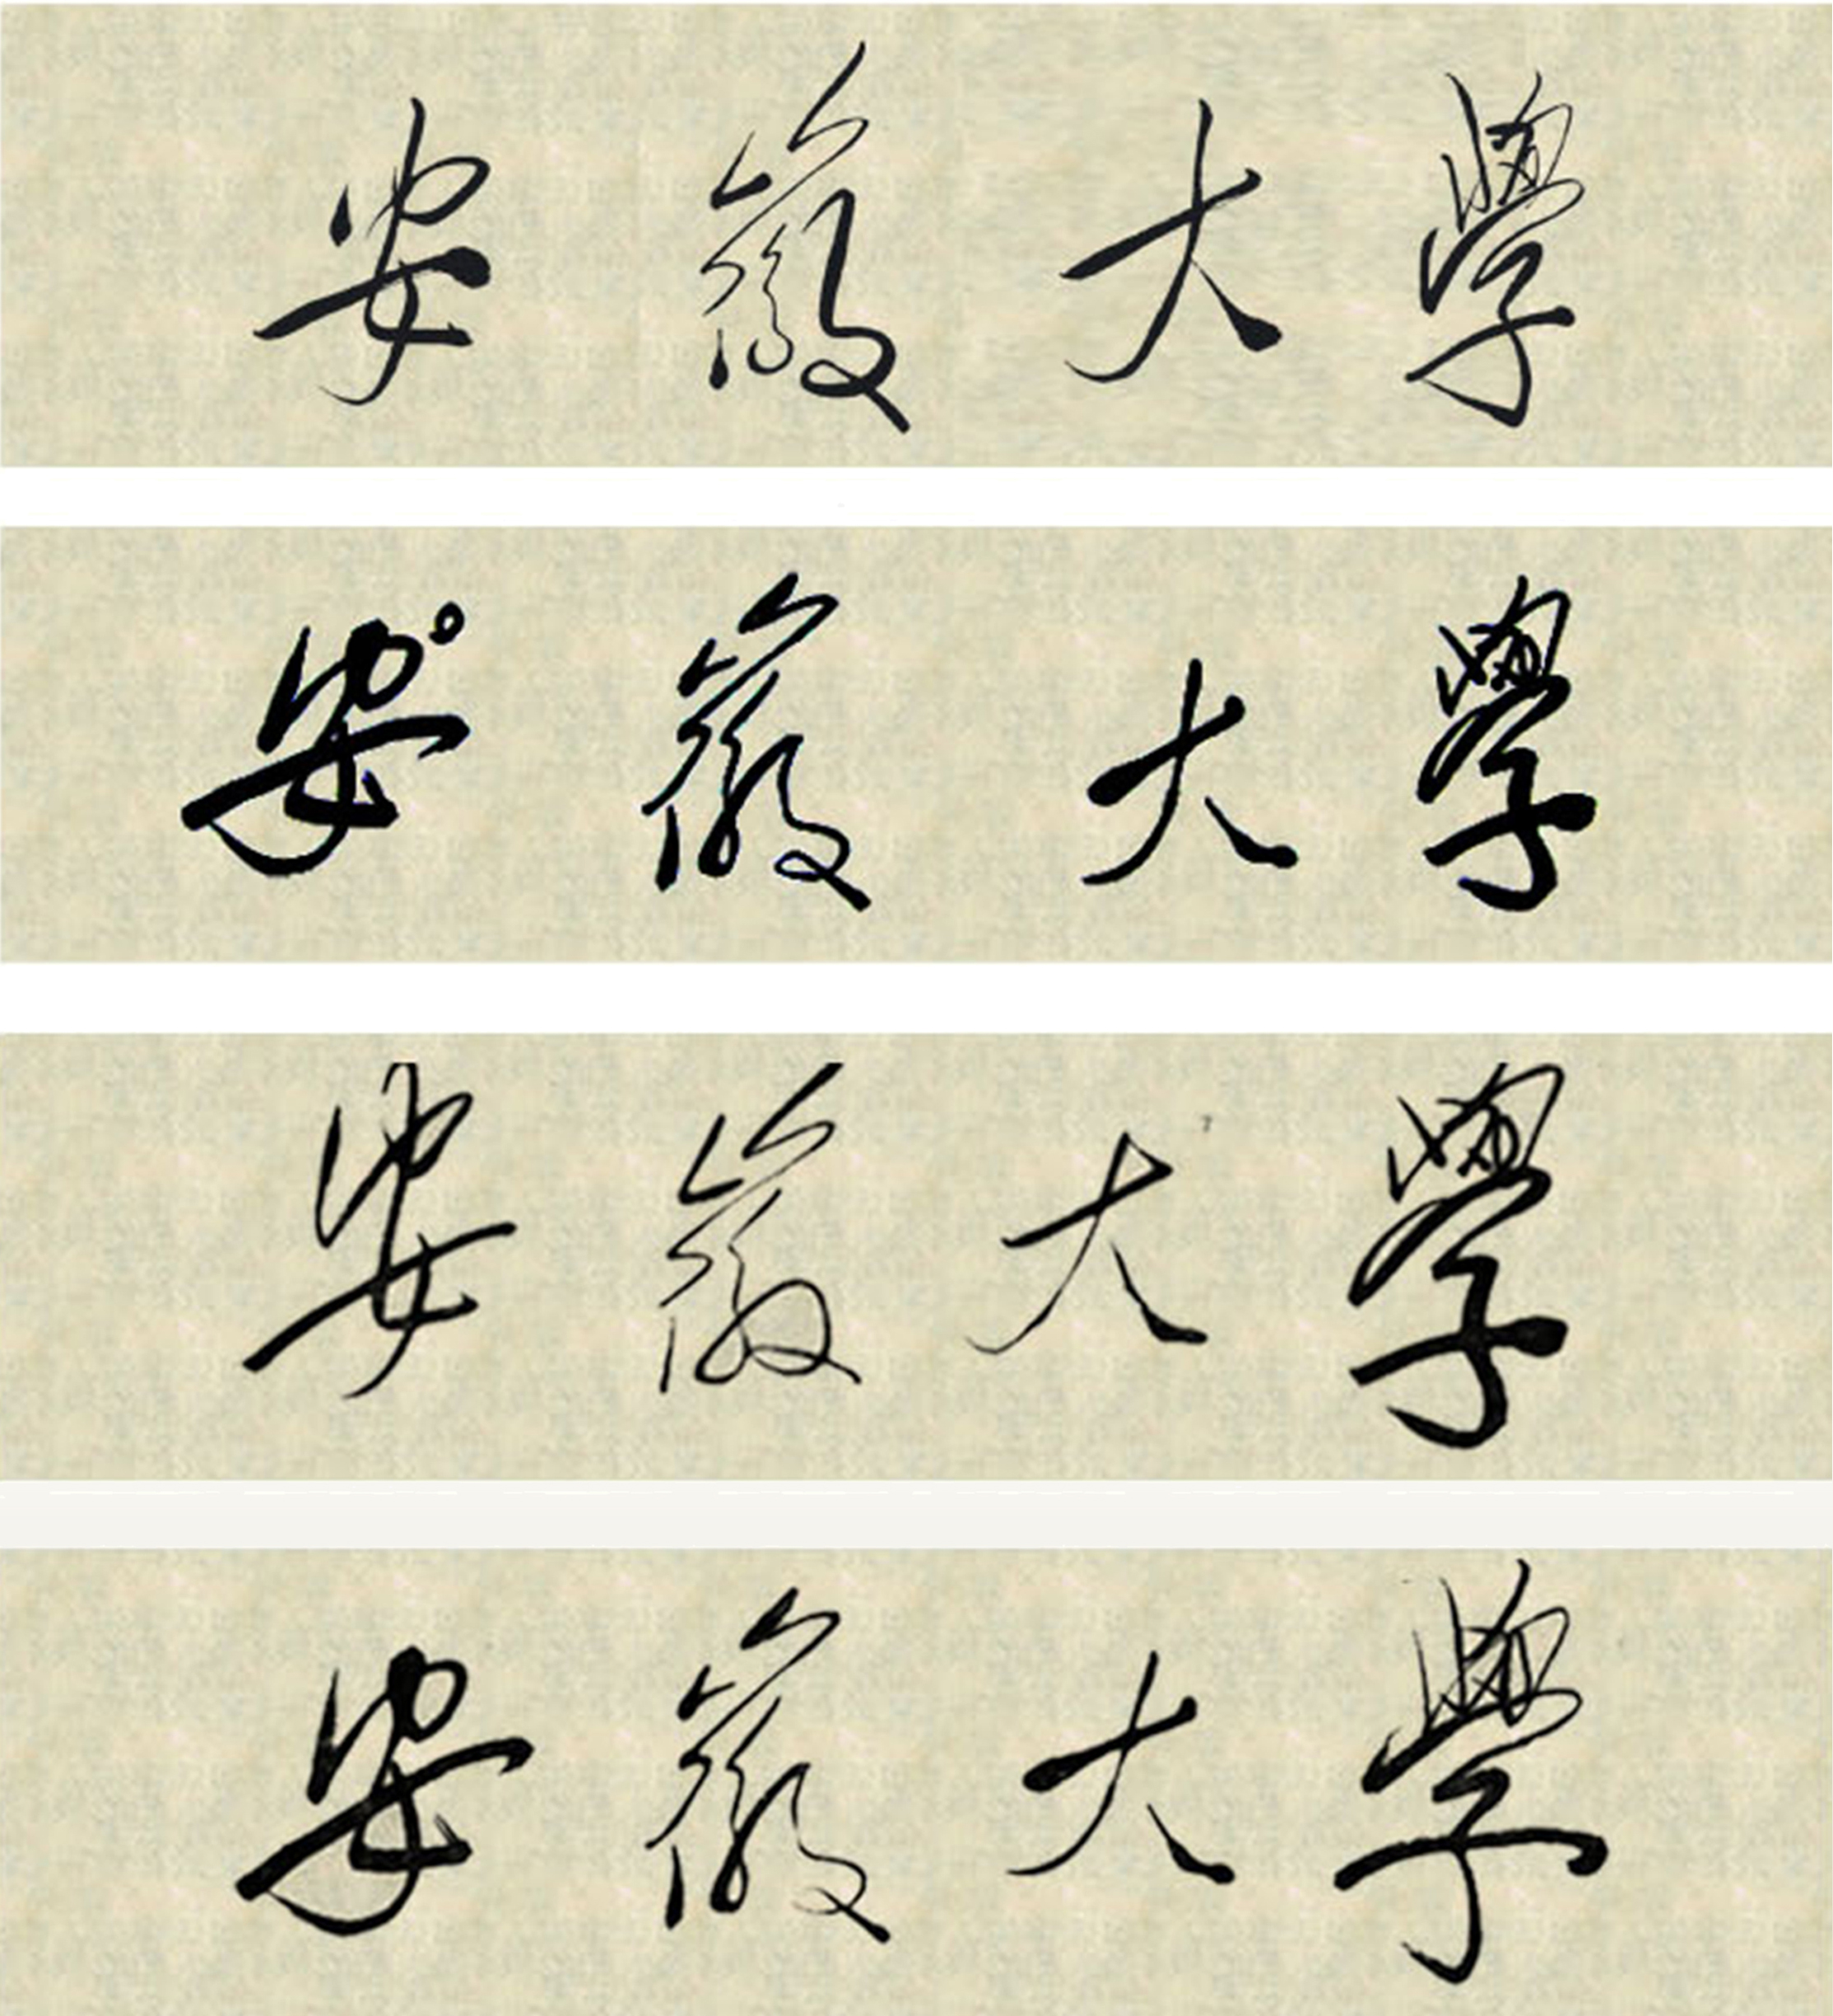 安徽大學
安徽大學
安徽大學
安徽大學